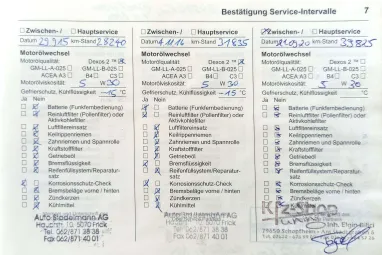 Bestätigung Service-Intervalle 7
Zwischen- / Hauptservice
Datum 29.9.15 km-Stand 28240
Motorölwechsel
Motorölqualität: Dexos 2™
GM-LL-A-025 GM-LL-B-025
ACEA A3 B4 C3
Motorölviskosität 5 W 30
Gefrierschutz, Kühlflüssigkeit -15 °C
Ja Nein
Batterie (Funkfernbedienung)
Reinluftfilter (Pollenfilter) oder Aktivkohlefilter
Luftfiltereinsatz
Keilrippenriemen
Zahnriemen und Spannrolle
Kraftstofffilter
Getriebeöl
Bremsflüssigkeit
Reifenfüllsystem/Reparatursatz
Korrosionsschutz-Check
Bremsbeläge vorne / hinten
Zündkerzen
Kühlmittel
Auto Stadelmann AG
Hauptstr. 10, 5070 Frick
Tel. 062/871 38 38
Fax 062/871 40 01
Zwischen- / Hauptservice
Datum 4.11.16 km-Stand 31835
Motorölwechsel
Motorölqualität: Dexos 2™
GM-LL-A-025 GM-LL-B-025
ACEA A3 B4 C3
Motorölviskosität 5 W 30
Gefrierschutz, Kühlflüssigkeit -15 °C
Ja Nein
Batterie (Funkfernbedienung)
Reinluftfilter (Pollenfilter) oder Aktivkohlefilter
Luftfiltereinsatz
Keilrippenriemen
Zahnriemen und Spannrolle
Kraftstofffilter
Getriebeöl
Bremsflüssigkeit
Reifenfüllsystem/Reparatursatz
Korrosionsschutz-Check
Bremsbeläge vorne / hinten
Zündkerzen
Kühlmittel
Auto Stadelmann AG
Hauptstr. 10, 5070 Frick
Tel. 062/871 38 38
Fax 062/871 40 01
Zwischen- / Hauptservice
Datum km-Stand 33825
Motorölwechsel
Motorölqualität: Dexos 2™
GM-LL-A-025 GM-LL-B-025
ACEA A3 B4 C3
Motorölviskosität 5 W 30
Gefrierschutz, Kühlflüssigkeit °C
Ja Nein
Batterie (Funkfernbedienung)
Reinluftfilter (Pollenfilter) oder Aktivkohlefilter
Luftfiltereinsatz
Keilrippenriemen
Zahnriemen und Spannrolle
Kraftstofffilter
Getriebeöl
Bremsflüssigkeit
Reifenfüllsystem/Reparatursatz
Korrosionsschutz-Check
Bremsbeläge vorne / hinten
Zündkerzen
Kühlmittel
Kfz-Shop